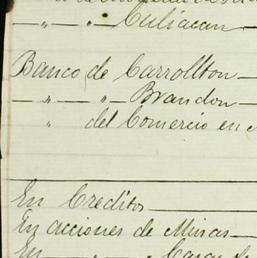 — " — " — Culiacan —
Banco de Carrollton —
— " — " — Brandon —
" del Comercio en
En Creditos —
En acciones de Minas —
En — " — " Casas de